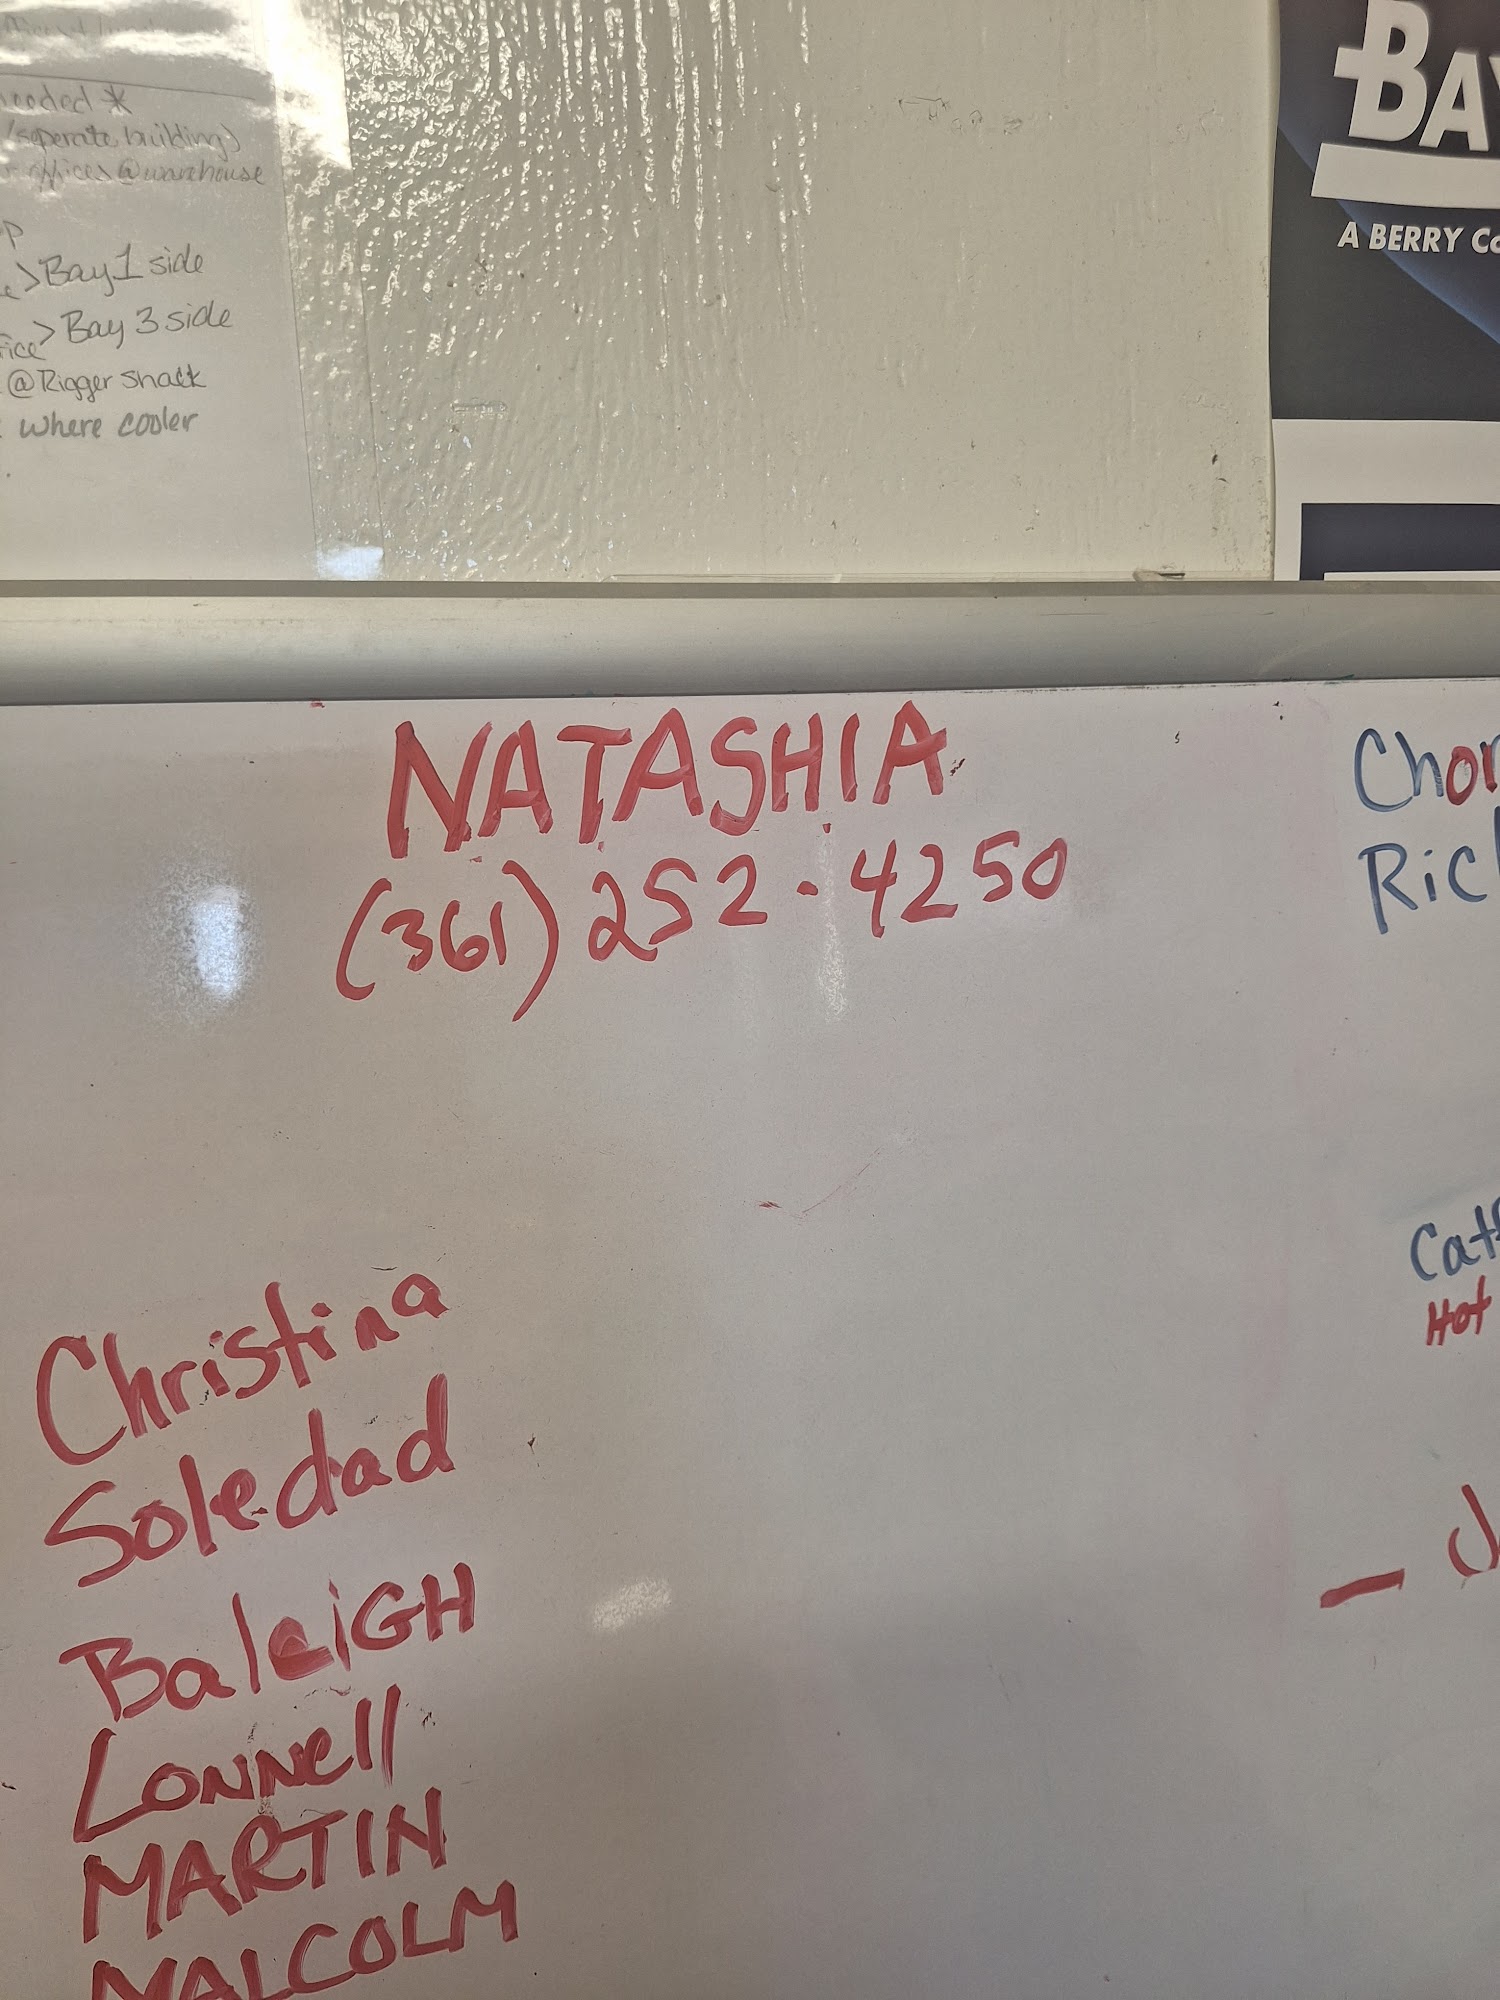 (seperate building)
offices @ warehouse
> Bay 1 side
> Bay 3 side
@ Rigger shack
where cooler
BAY
A BERRY Co
NATASHIA
(361) 252-4250
Christina
Soledad
BaleiGH
Lonnell
MARTIN
MALCOLM
Hot